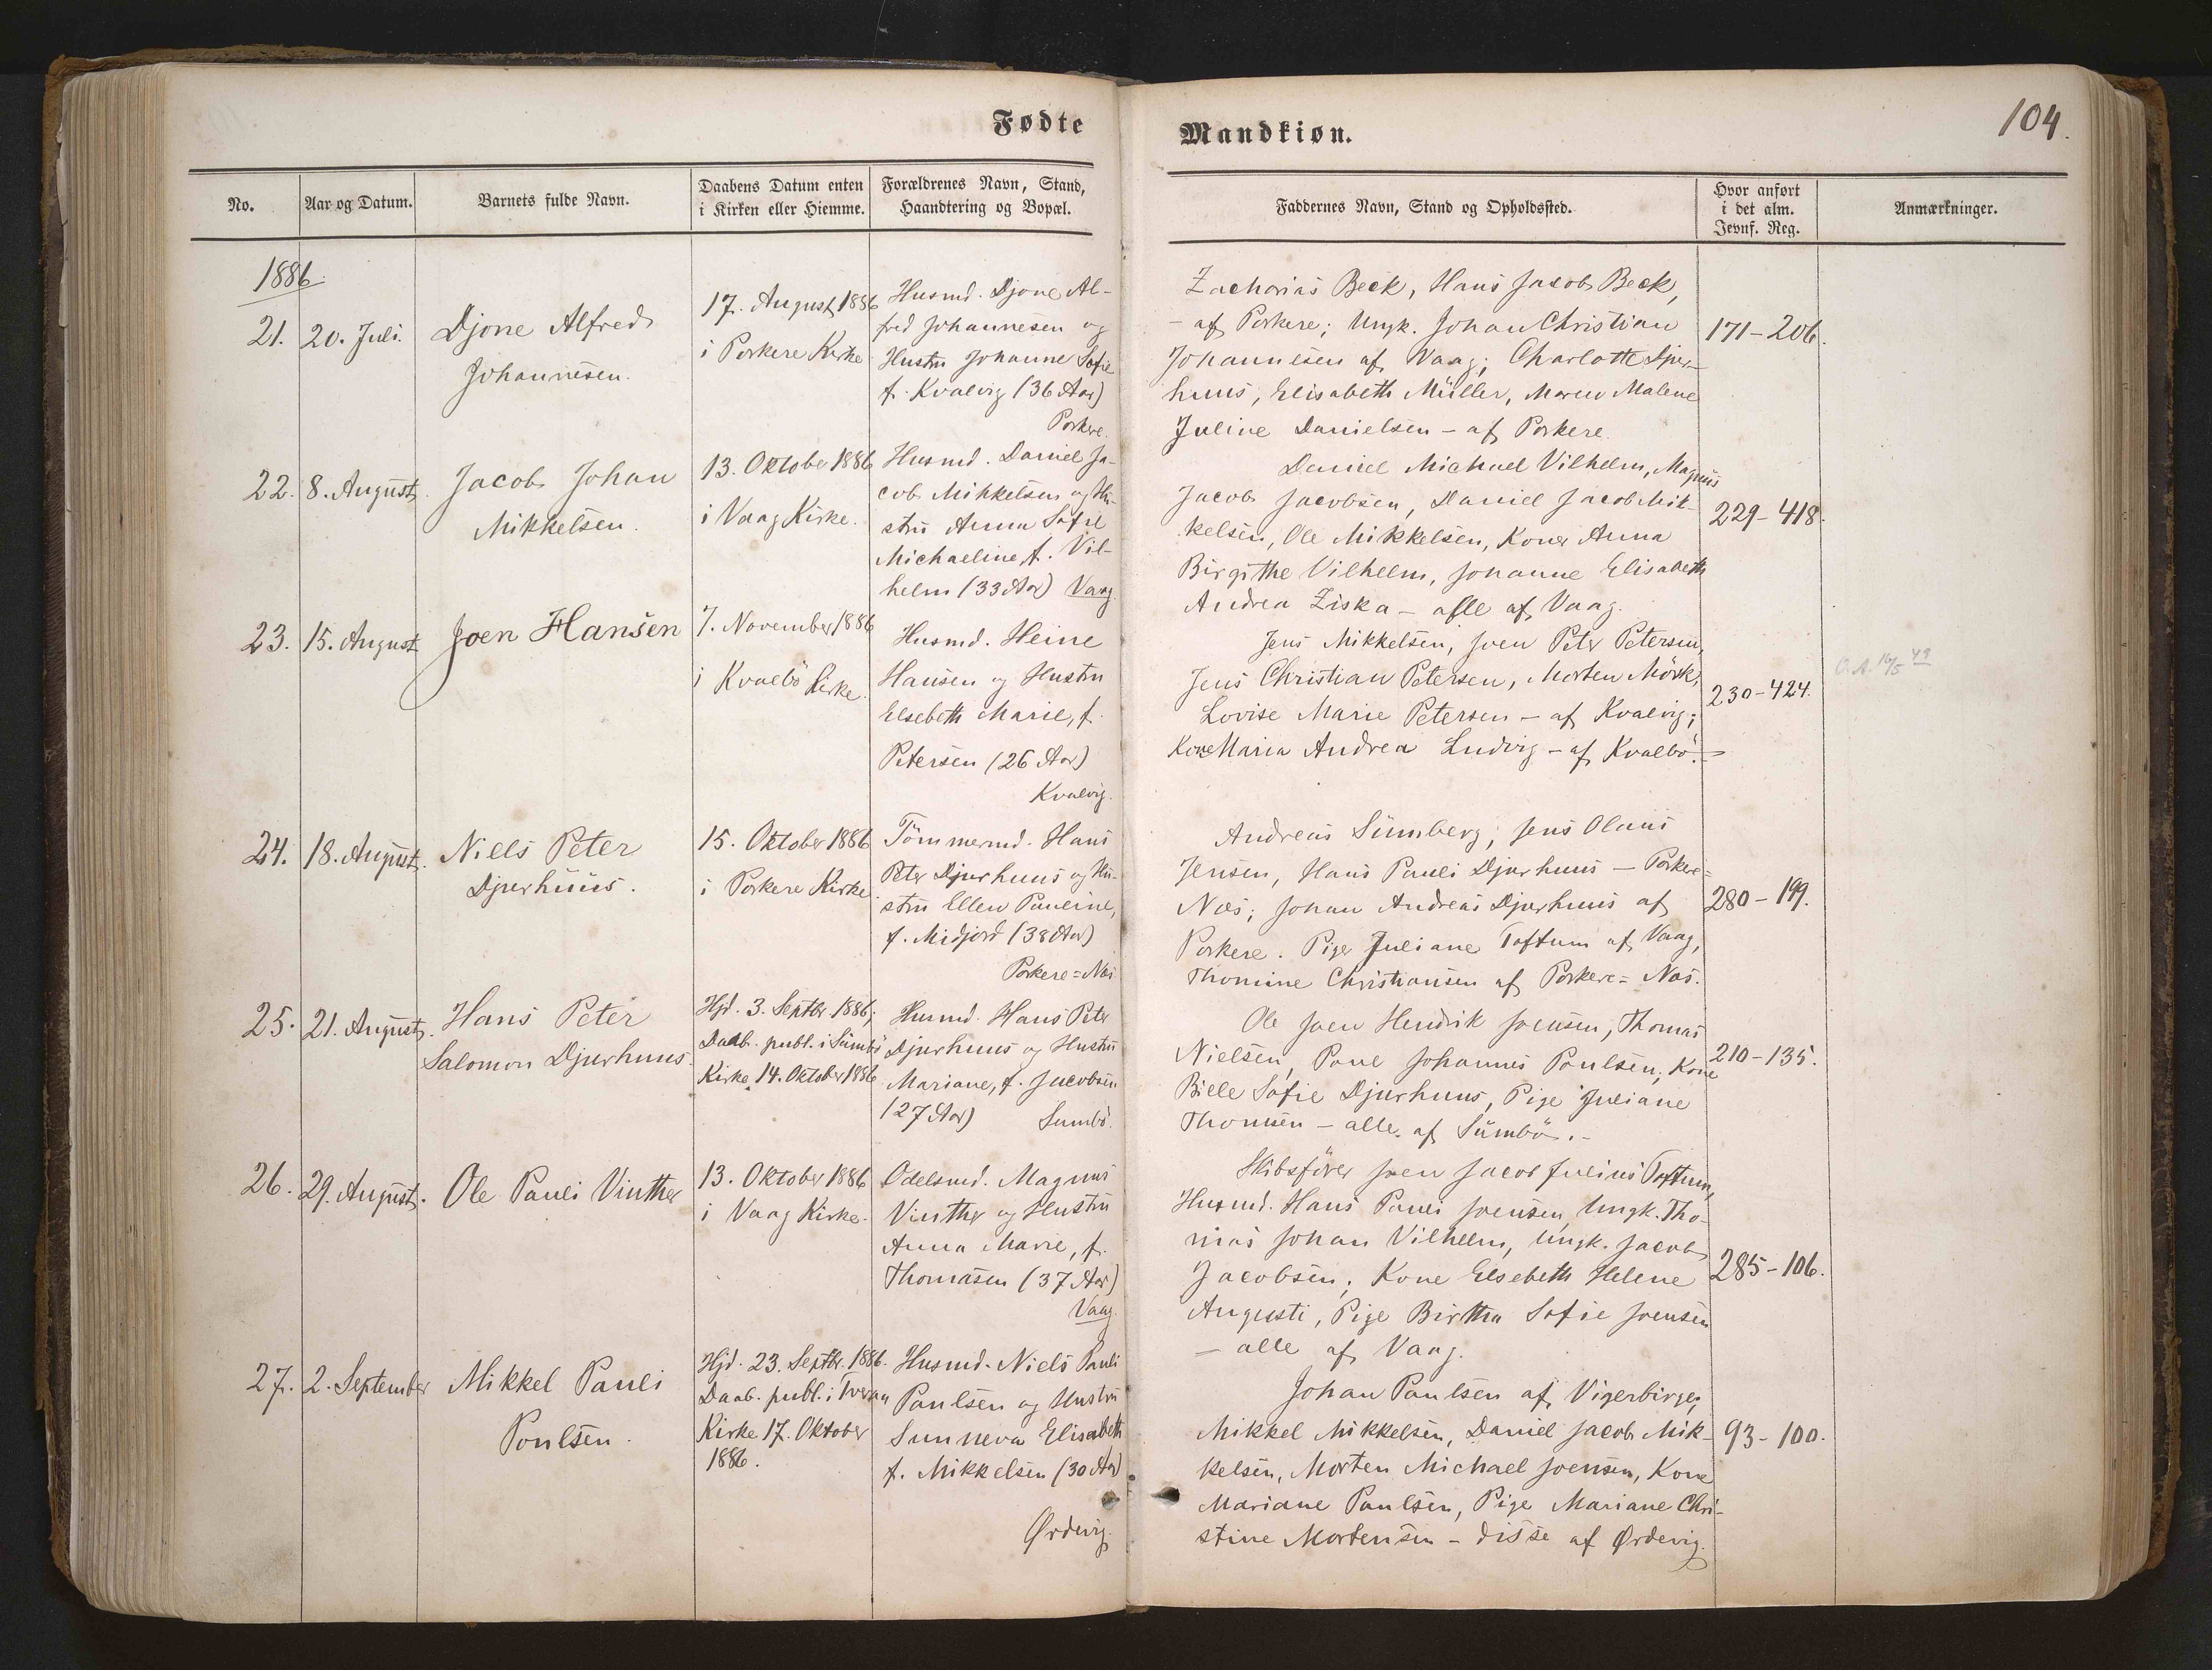 Fødte
Mandkiøn.
104.
No.
Aar og Datum.
Barnets fulde Navn.
Daabens Datum enten
i Kirken eller Hiemme.
Forældrenes Navn, Stand,
Haandtering og Bopæl.
Faddernes Navn, Stand og Opholdssted.
Hvor anført
i det alm.
Jevnf. Reg.
Anmærkninger.
1886
21.
20. Juli.
Djone Alfred
Johannesen.
17. August 1886
i Porkere Kirke
Husmd. Djone Al-
fred Johannesen og
Hustru Johanne Sofie
f. Kvalvig (36 Aar)
Porkere.
Zacharias Beck, Hans Jacob Beck,
- af Porkere; Ungk. Johan Christian
Johannesen af Vaag; Charlotte Djur-
huus, Elisabeth Müller, Maren Malene
Juline Danielsen - af Porkere.
171-206.
22.
8. August.
Jacob Johan
Mikkelsen.
13. Oktober 1886
i Vaag Kirke.
Husmd. Daniel Ja-
cob Mikkelsen og Hu-
stru Anna Sofie
Michaeline, f. Vil-
helm (33 Aar) Vaag.
Daniel Michael Vilhelm, Magnus
Jacob Jacobsen, Daniel Jacob Mik-
kelsen, Ole Mikkelsen, Koner Anna
Birgithe Vilhelm, Johanne Elisabeth
Andrea Ziska - alle af Vaag.
229-418.
23.
15. August
Joen Hansen
7. November 1886
i Kvalbö Kirke.
Husmd. Heine
Hansen og Hustru
Elsebeth Marie, f.
Petersen (26 Aar)
Kvalvig.
Jens Mikkelsen, Joen Peter Petersen,
Jens Christian Petersen, Morten Mörk,
Lovise Marie Petersen - af Kvalvig;
Kone Maria Andrea Ludvig - af Kvalbö.
230-424.
O.A. 16/5 49
24.
18. August.
Niels Peter
Djurhuus.
15. Oktober 1886
i Porkere Kirke
Tömmermd. Hans
Peter Djurhuus og Hu-
stru Ellen Pauline,
f. Midjord (38 Aar)
Porkere=Næs
Andreas Sumberg, Jens Olaus
Jensen, Hans Pauli Djurhuus - Porkere=
Næs; Johan Andreas Djurhuus af
Porkere. Pige Juliane Toftum af Vaag,
Thomine Christiansen af Porkere=Næs.
280-199.
25.
21. August.
Hans Peter
Salomon Djurhuus.
Hjd. 3. Septbr. 1886;
Daab. publ. i Sumbö
Kirke 14. Oktober 1886
Husmd. Hans Peter
Djurhuus og Hustru
Mariane, f. Jacobsen
(27 Aar) Sumbö.
Ole Joen Hendrik Joensen, Thomas
Nielsen, Poul Johannes Poulsen, Kone
Bille Sofie Djurhuus, Pige Juliane
Thomsen - alle af Sumbö.-
210-135.
26.
29. August.
Ole Pauli Vinther
13. Oktober 1886
i Vaag Kirke.
Odelsmd. Magnus
Vinther og Hustru
Anna Marie, f.
Thomasen (37 Aar)
Vaag.
Skibsfører Joen Jacob Julius Toftum,
Husmd. Hans Pauli Joensen, Ungk. Tho-
mas Johan Vilhelm, Ungk. Jacob
Jacobsen; Kone Elsebeth Helene
Augusti, Pige Birtha Sofie Joensen
- alle af Vaag.
285-106.
27.
2. September
Mikkel Pauli
Poulsen.
Hjd. 23. Septbr. 1886.
Daab. publ. i Tveraa
Kirke 17. Oktober
1886.
Husmd. Niels Pauli
Paulsen og Hustru
Sunneva Elisabeth
f. Mikkelsen (30 Aar)
Ørdevig.
Johan Paulsen af Vigerbirge;
Mikkel Mikkelsen, Daniel Jacob Mik-
kelsen, Morten Michael Joensen, Kone
Mariane Paulsen, Pige Mariane Chri-
stine Mortensen - disse af Ørdevig.
93-100.